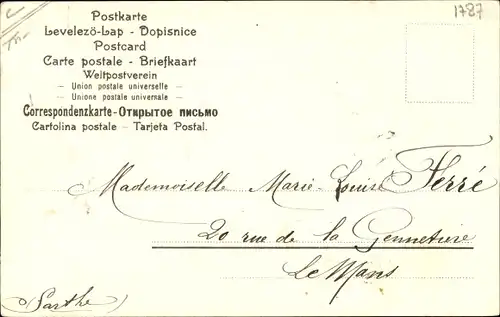 1787
Postkarte
Levelező-Lap - Dopisnice
Postcard
Carte postale - Briefkaart
Weltpostverein
- Union postale universelle -
- Unione postale universale -
Correspondenzkarte-Открытое письмо
Cartolina postale - Tarjeta Postal.
Mademoiselle Marie-Louise Ferré
20 rue de la Gennetiere
Le Mans
(Sarthe)